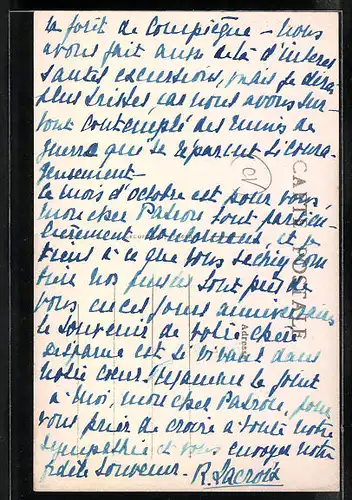 la forêt de Compiègne – Nous
avons fait aussi de là d'intéres
santes excursions, mais je dirai
plus tristes, car nous avons sur-
tout contemplé des ruines de
guerre qui se réparent si coura-
geusement –
Le mois d'octobre est pour vous,
mon cher Patron tout particu-
lièrement douloureux, et je
tiens à ce que vous sachiez com
bien nos pensées sont près de
vous en ces jours anniversaires
le souvenir de votre chère
disparue est si vivant dans
notre cœur. Germaine se joint
à moi, mon cher Patron, pour
vous prier de croire à toute notre
sympathie et vous envoyer notre
fidèle souvenir – R. Lacroix
CARTE POSTALE
Adresse